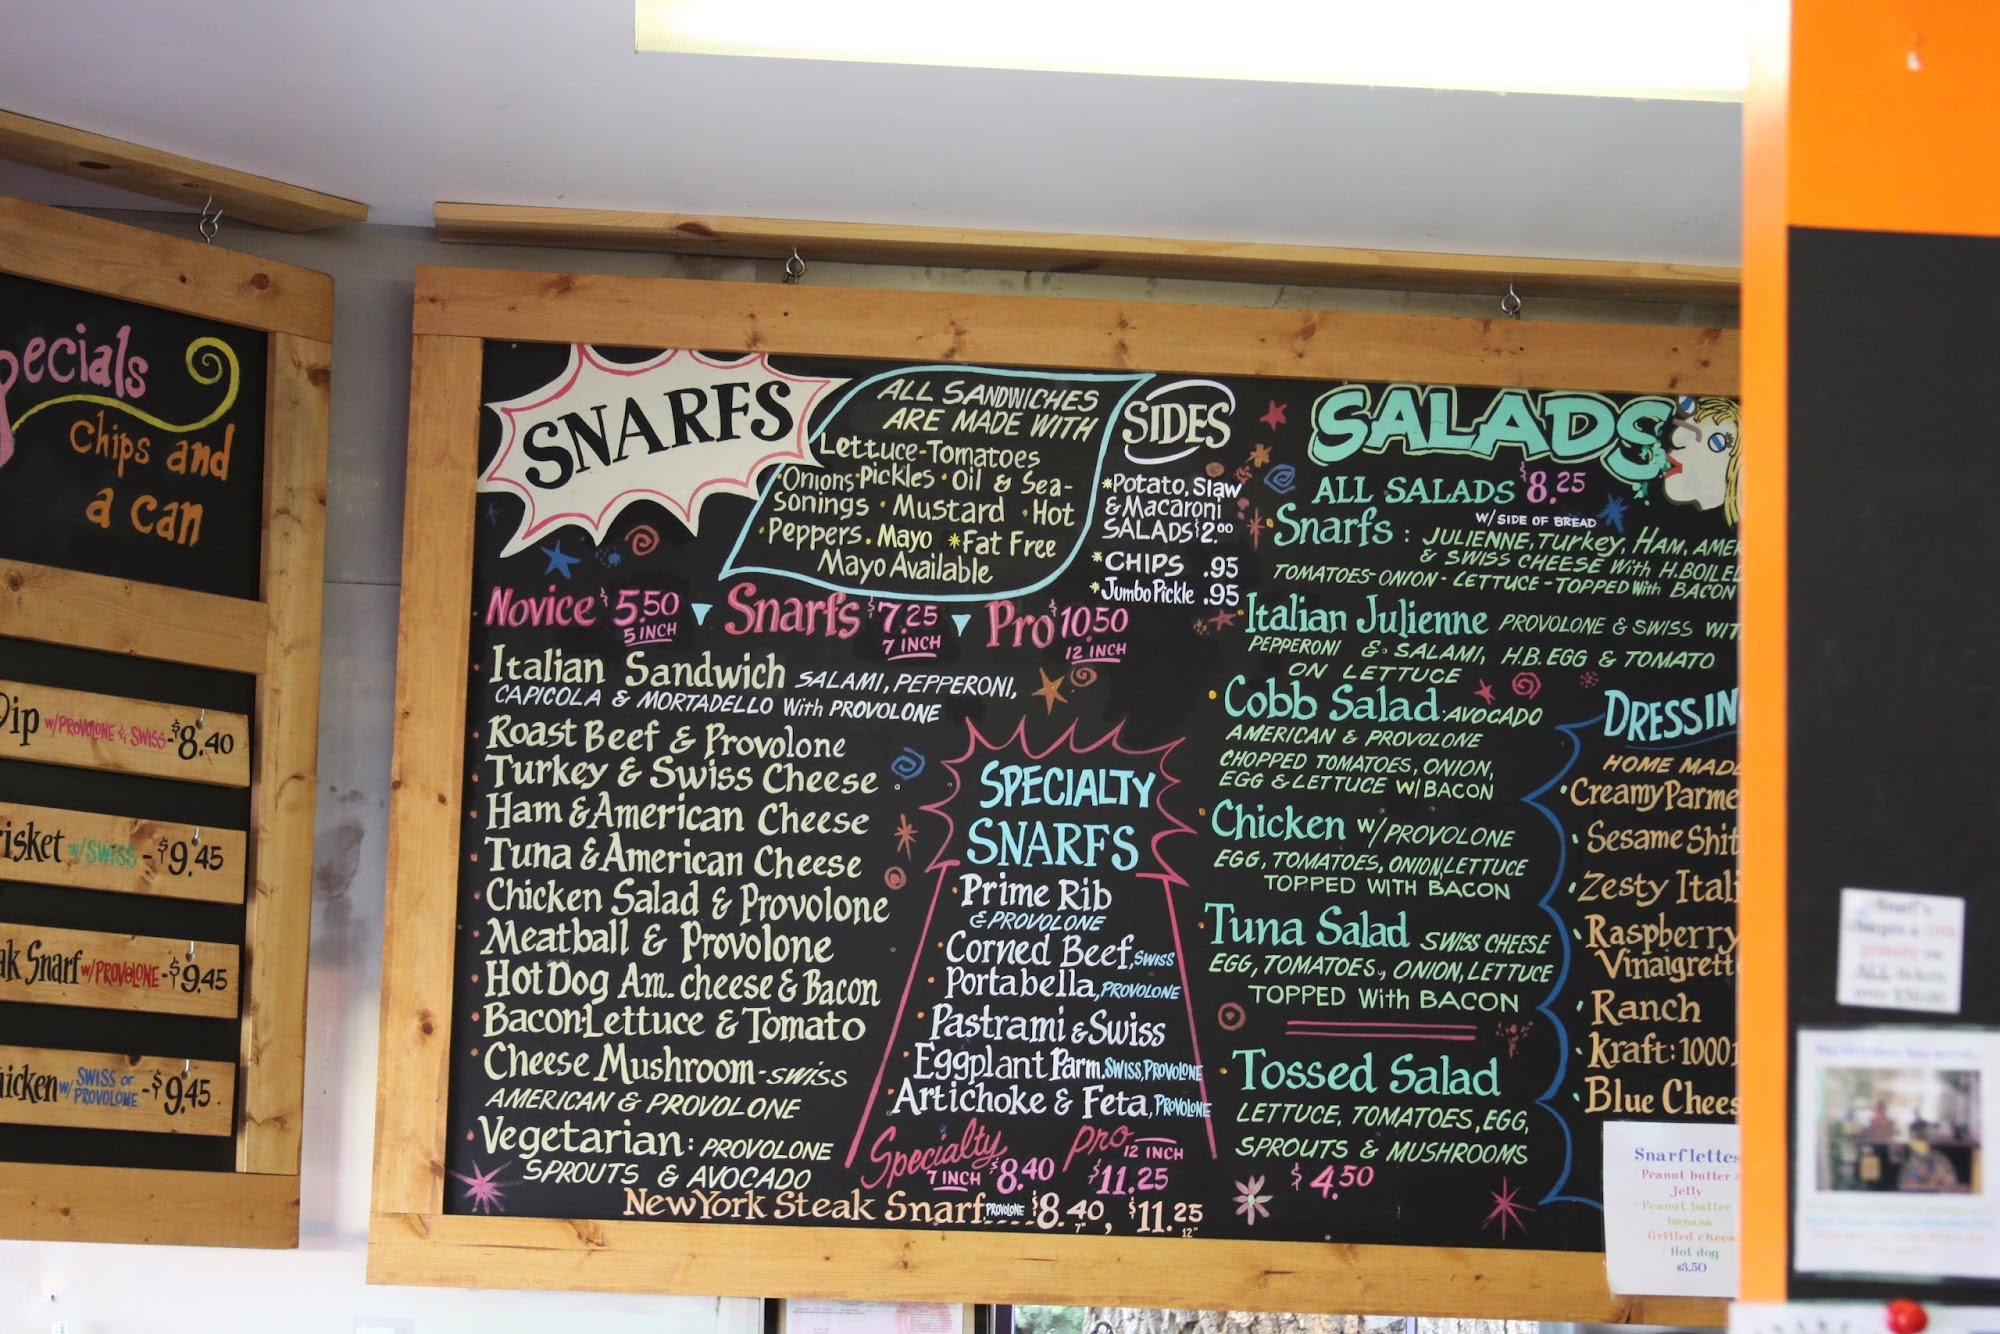 chips and
a can
w/PROVOLONE & SWISS - $8.40
w/SWISS - $9.45
Snarf w/PROVOLONE - $9.45
w/ SWISS or PROVOLONE - $9.45
SNARFS
ALL SANDWICHES
ARE MADE WITH
Lettuce - Tomatoes
Onions · Pickles · Oil & Sea-
sonings · Mustard · Hot
Peppers. Mayo *Fat Free
Mayo Available
Novice $5.50 Snarfs $7.25 Pro $10.50
5 INCH 7 INCH 12 INCH
· Italian Sandwich SALAMI, PEPPERONI,
CAPICOLA & MORTADELLO With PROVOLONE
· Roast Beef & Provolone
· Turkey & Swiss Cheese
· Ham & American Cheese
· Tuna & American Cheese
· Chicken Salad & Provolone
· Meatball & Provolone
· Hot Dog Am. cheese & Bacon
· Bacon-Lettuce & Tomato
· Cheese Mushroom - SWISS
AMERICAN & PROVOLONE
· Vegetarian: PROVOLONE
SPROUTS & AVOCADO
SPECIALTY
SNARFS
· Prime Rib
& PROVOLONE
· Corned Beef, SWISS
· Portabella, PROVOLONE
· Pastrami & Swiss
· Eggplant Parm. SWISS, PROVOLONE
· Artichoke & Feta, PROVOLONE
Specialty Pro 12 INCH
7 INCH $8.40 $11.25
New York Steak Snarf PROVOLONE .... $8.40, $11.25
7" 12"
SIDES
*Potato, Slaw
& Macaroni
SALADS $2.00
*CHIPS .95
*Jumbo Pickle .95
SALADS
ALL SALADS $8.25
W/ SIDE OF BREAD
· Snarfs : JULIENNE, Turkey, HAM,
& SWISS CHEESE With
TOMATOES - ONION - LETTUCE - TOPPED With BACON
· Italian Julienne PROVOLONE & SWISS
PEPPERONI & SALAMI, H.B. EGG & TOMATO
ON LETTUCE
· Cobb Salad · AVOCADO
AMERICAN & PROVOLONE
CHOPPED TOMATOES, ONION,
EGG & LETTUCE W/ BACON
· Chicken w/ PROVOLONE
EGG, TOMATOES, ONION, LETTUCE
TOPPED WITH BACON
· Tuna Salad SWISS CHEESE
EGG, TOMATOES, ONION, LETTUCE
TOPPED With BACON
· Tossed Salad
LETTUCE, TOMATOES, EGG,
SPROUTS & MUSHROOMS
$4.50
DRESSIN
HOME MADE
· Creamy Parme
· Sesame Shit
· Zesty Itali
· Raspberry
Vinaigrett
· Ranch
· Kraft: 1000
· Blue Chees
Snarflettes
· Peanut butter
jelly
· Peanut butter
banana
· Grilled chees
· Hot dog
$3.50